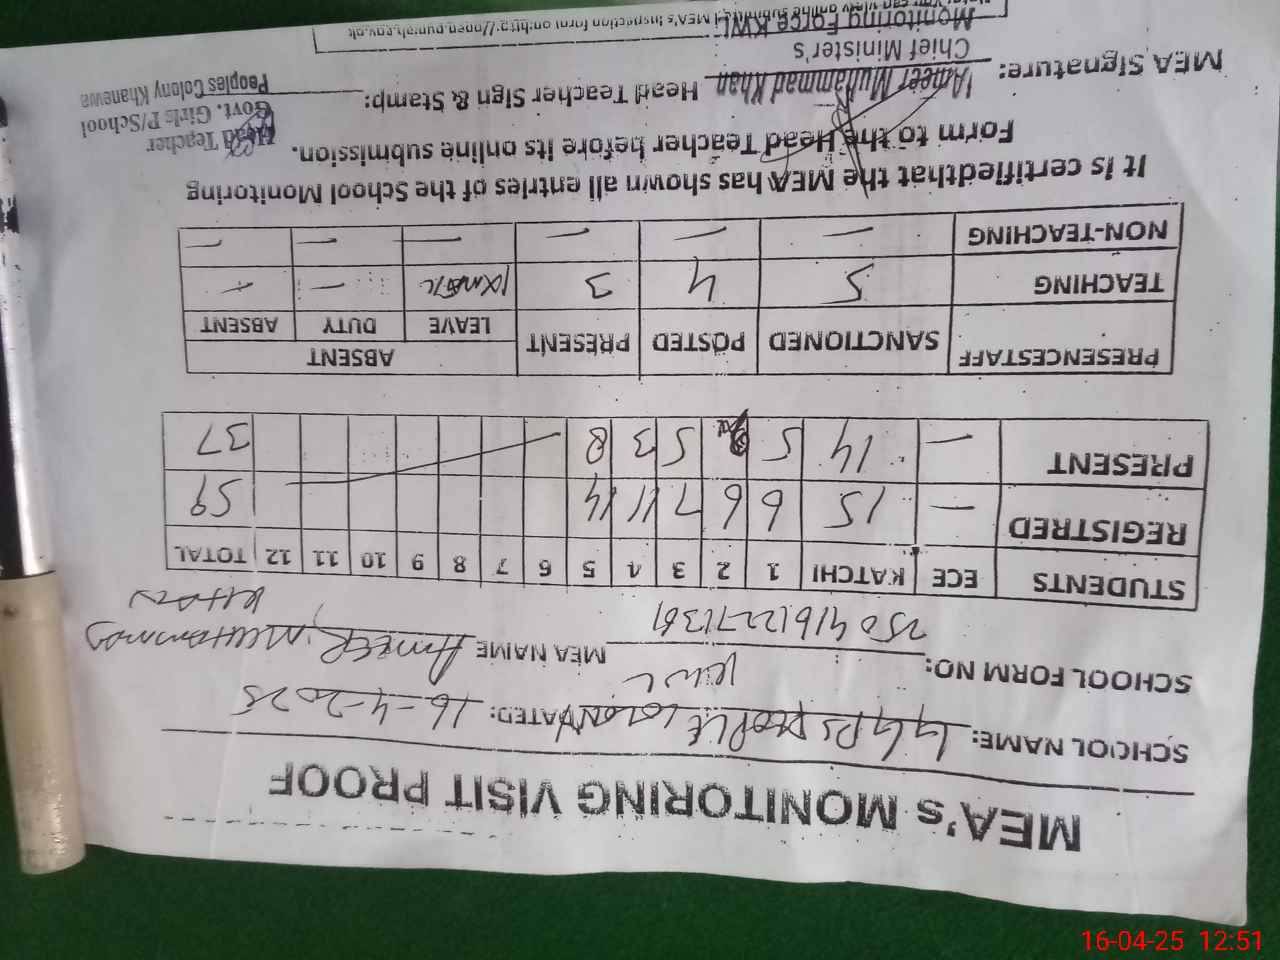 MEA's MONITORING VISIT PROOF
SCHOOL NAME: GGPS PEOPLE COLONY DATED: 16-4-2025
KWL
SCHOOL FORM NO: MEA NAME AMEER MUHAMMAD
KHAN
STUDENTS ECE KATCHI 1 2 3 4 5 6 7 8 9 10 11 12 TOTAL
REGISTRED — 15 6 6 7 11 14 59
PRESENT — 14 5 5 3 8 37
PRESENCESTAFF SANCTIONED POSTED PRESENT ABSENT
LEAVE DUTY ABSENT
TEACHING 5 4 3 — —
NON-TEACHING — — — — — —
It is certifiedthat the MEA has shown all entries of the School Monitoring
Form to the Head Teacher before its online submission.
MEA Signature: Head Teacher Sign & Stamp:
Ameer Muhammad Khan
Chief Minister's
Monitoring Force KWL
Head Teacher
Govt. Girls P/School
Peoples Colony Khanewa
16-04-25 12:51